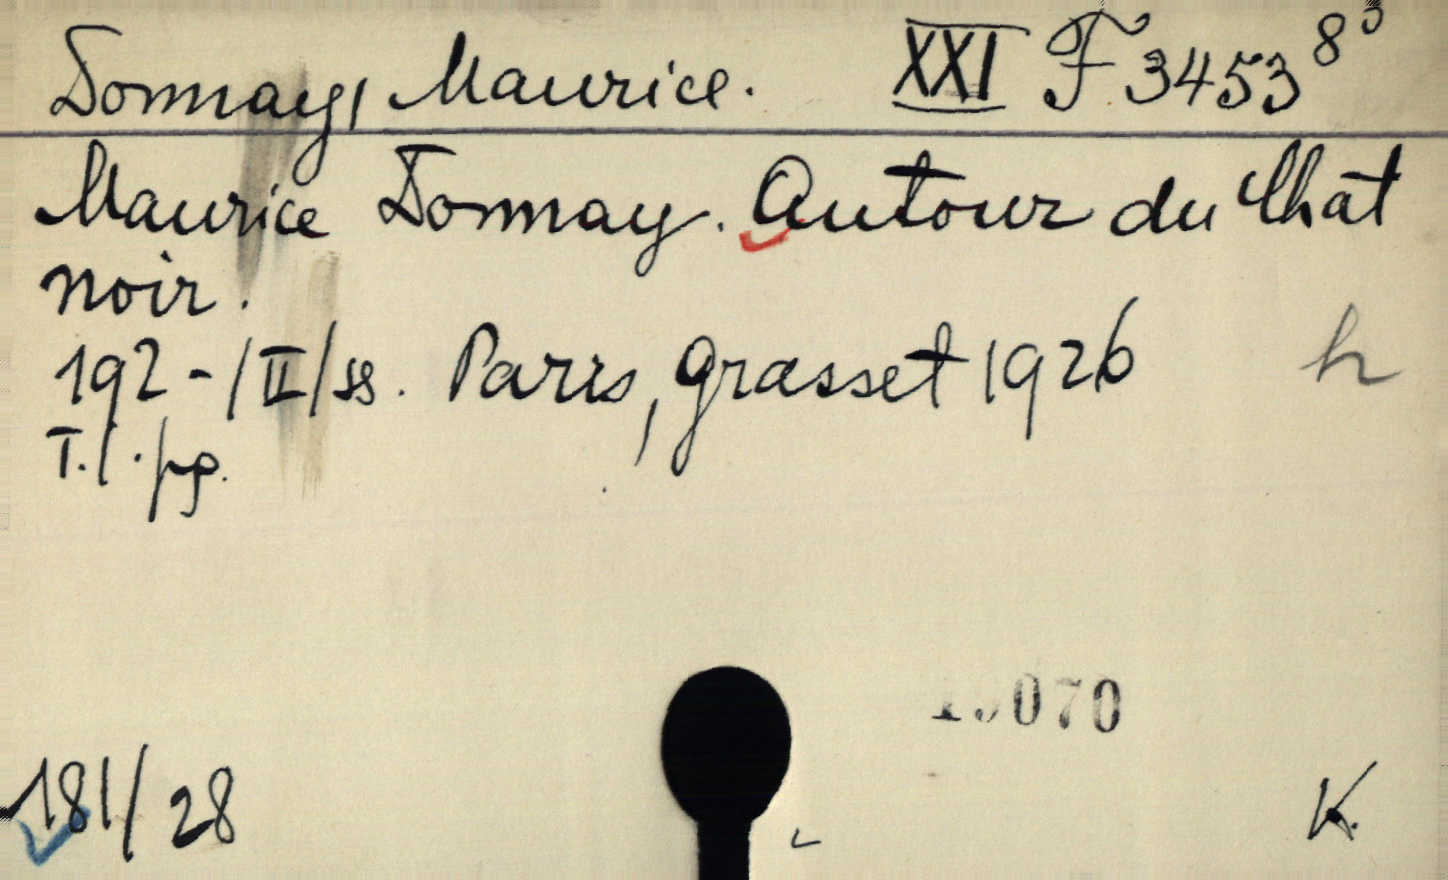 Donnay, Maurice. XXI F 3453 8°
Maurice Donnay. Autour du Chat
noir.
192 - /II/ ss. Paris, Grasset 1926 h
T. l. pg.
070
181/28 K.